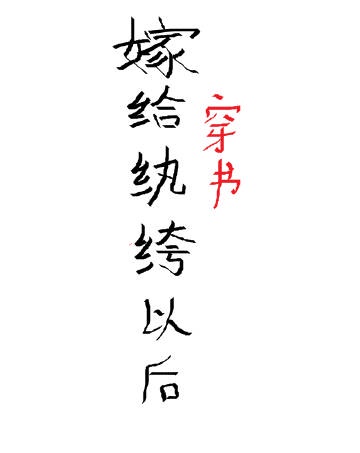 嫁给纨绔以后
穿书